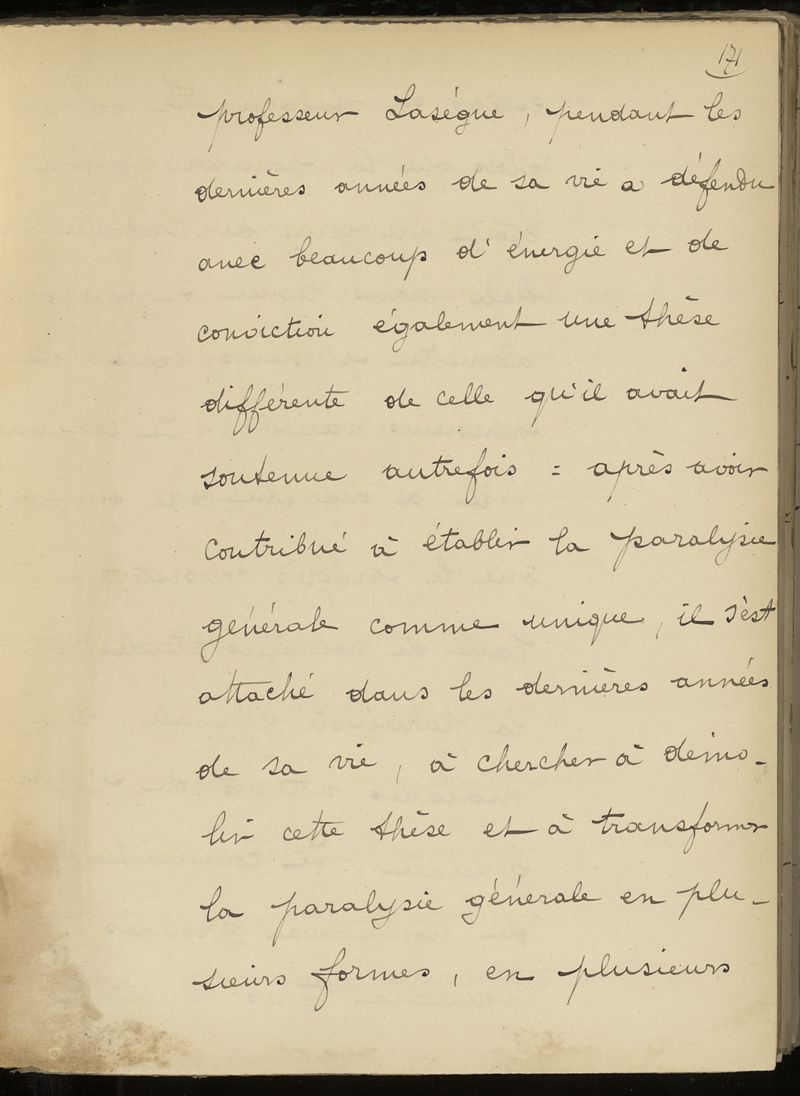 171
professeur Lasègue, pendant les
dernières années de sa vie a défendu
avec beaucoup d'énergie et de
conviction également une thèse
différente de celle qu'il avait
soutenue autrefois = après avoir
contribué à établir la paralysie
générale comme unique, il s'est
attaché dans les dernières années
de sa vie, à chercher à démo-
lir cette thèse et à transformer
la paralysie générale en plu-
sieurs formes, en plusieurs